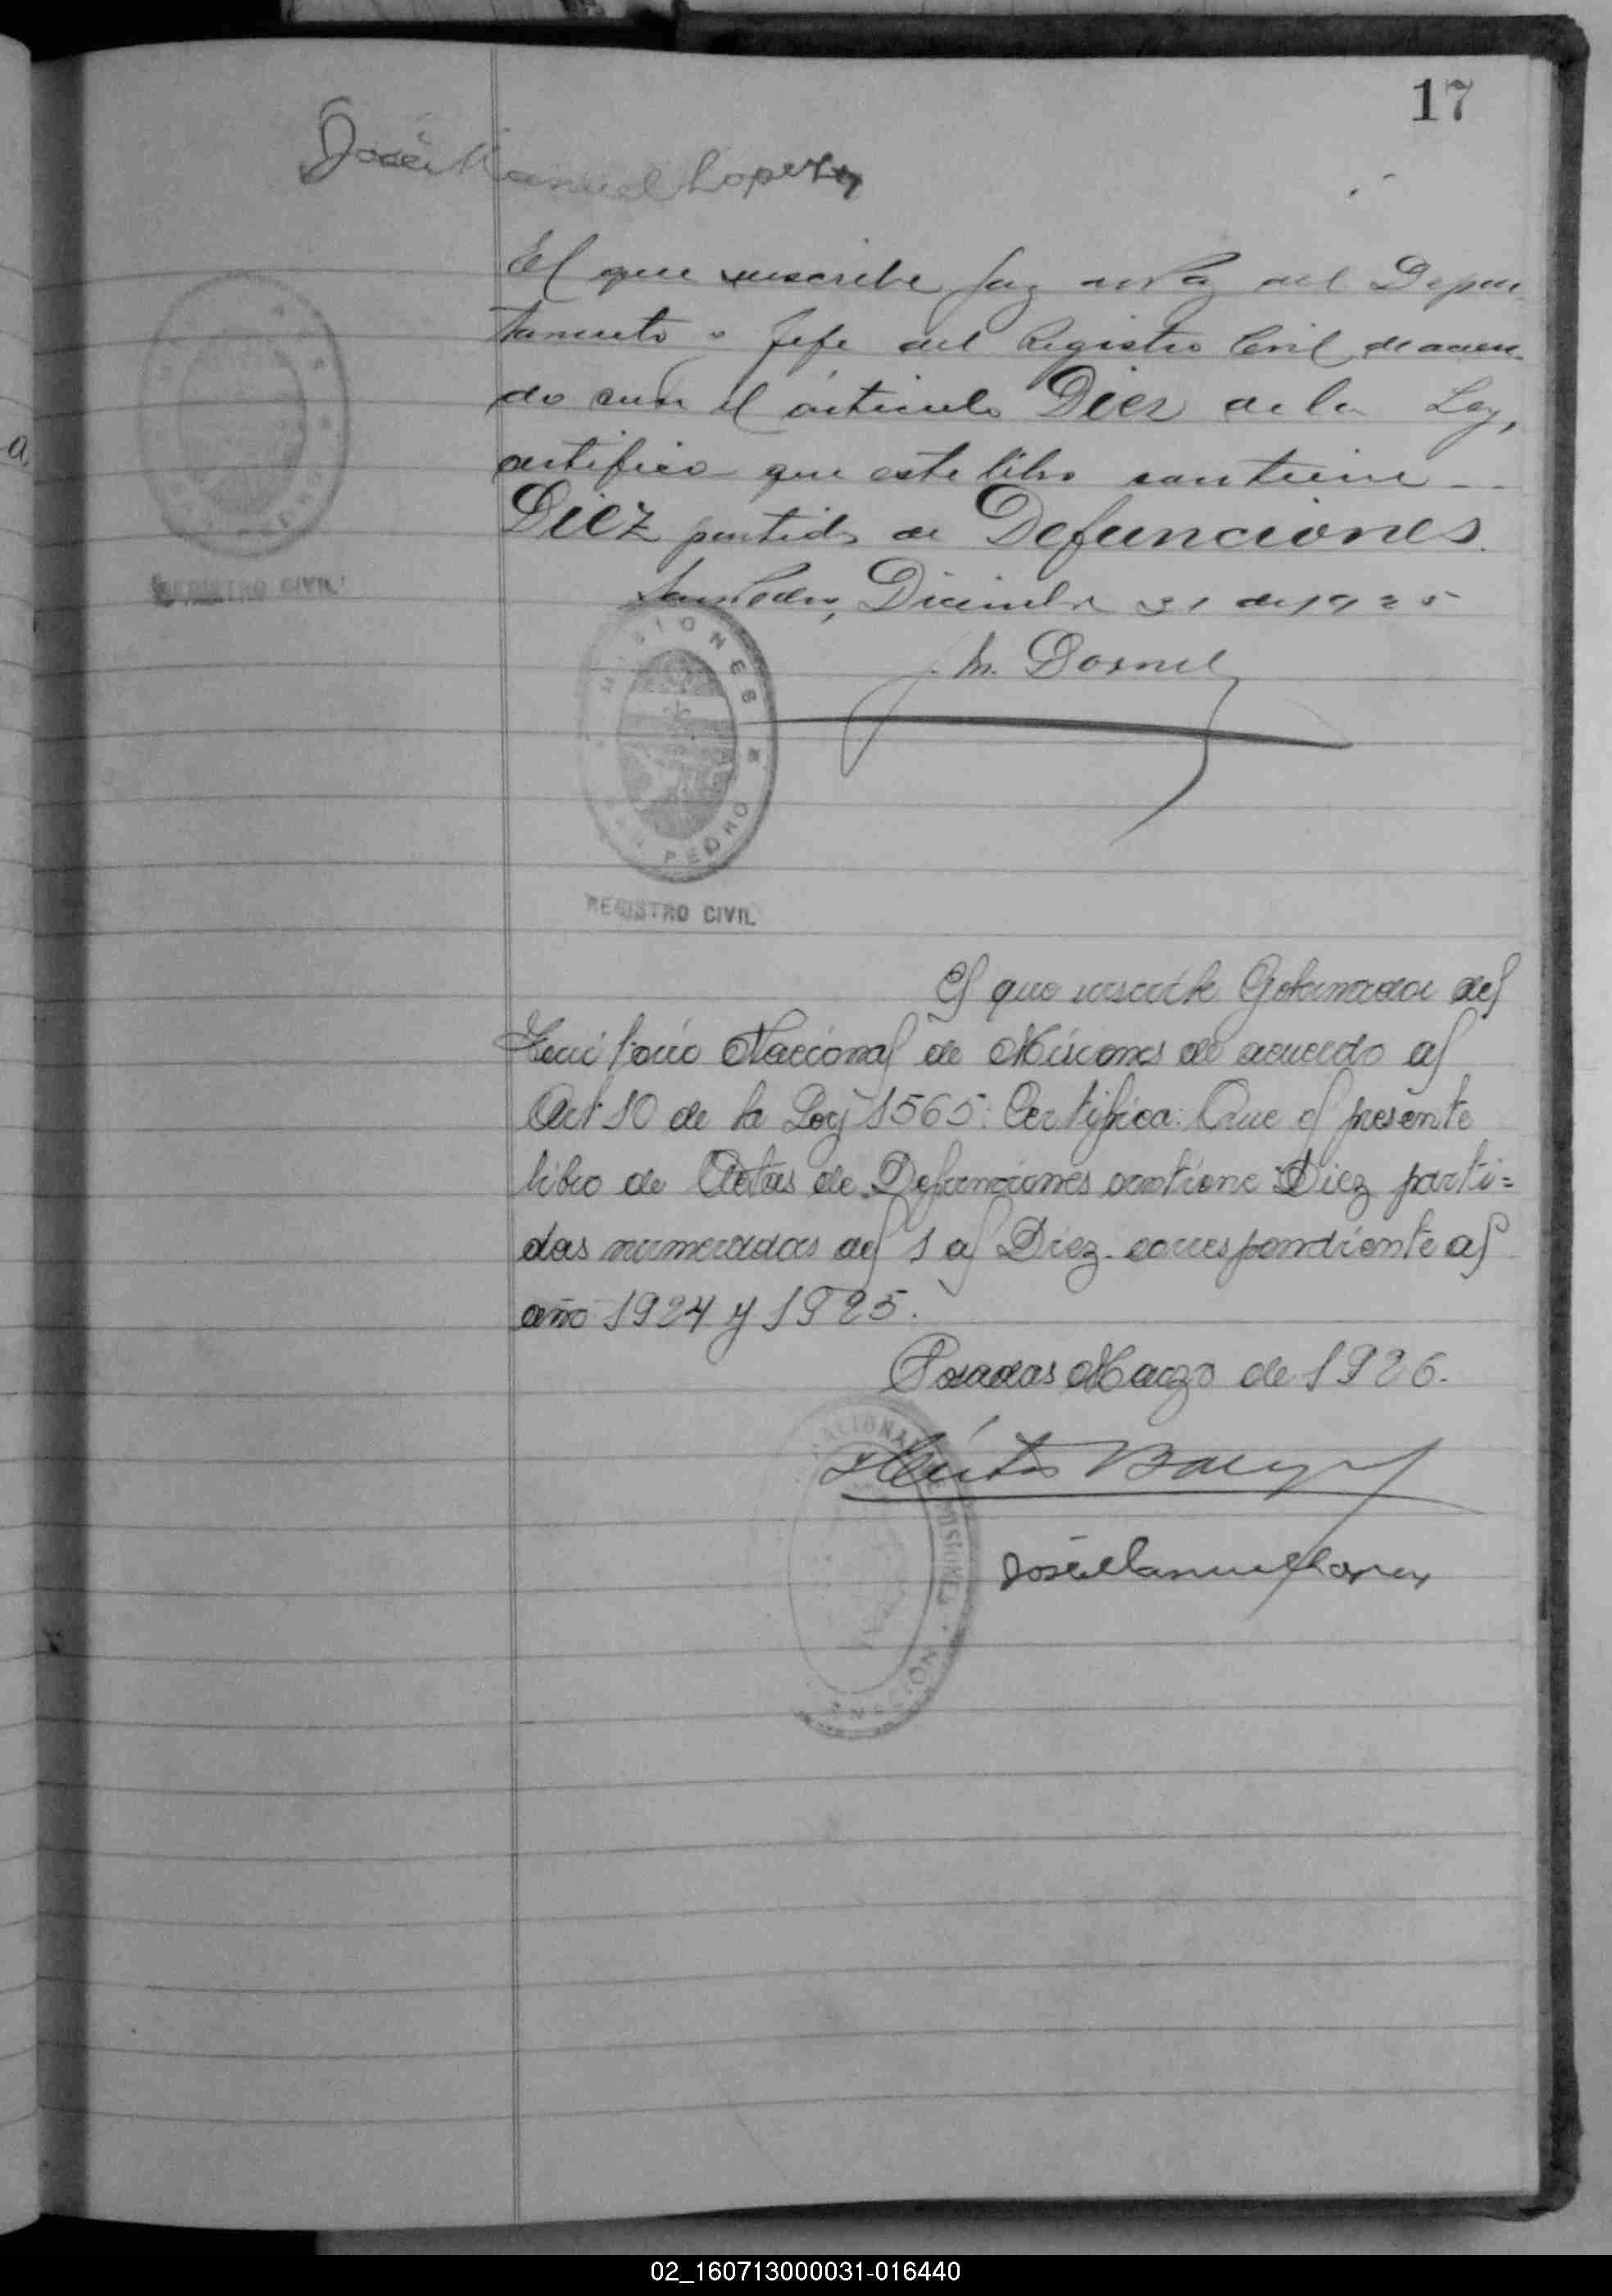 17
José Manuel Lopez
El que suscribe Juez de Paz del Depar-
tamento y Jefe del Registro Civil de acuer-
do con el artículo Diez de la Ley,
certifico que este libro contiene
Diez partidas de Defunciones.
San Pedro, Diciembre 31 de 1925
MISIONES
J. M. Dornel
SAN PEDRO
REGISTRO CIVIL
REGISTRO CIVIL
El que suscribe Gobernador del
Territorio Nacional de Misiones de acuerdo al
Art 10 de la Ley 1565: Certifica: Que el presente
libro de Actas de Defunciones contiene Diez parti=
das numeradas del 1 al Diez correspondiente al
año 1924 y 1925.
Posadas Marzo de 1926.
José Manuel Lopez
02_160713000031-016440